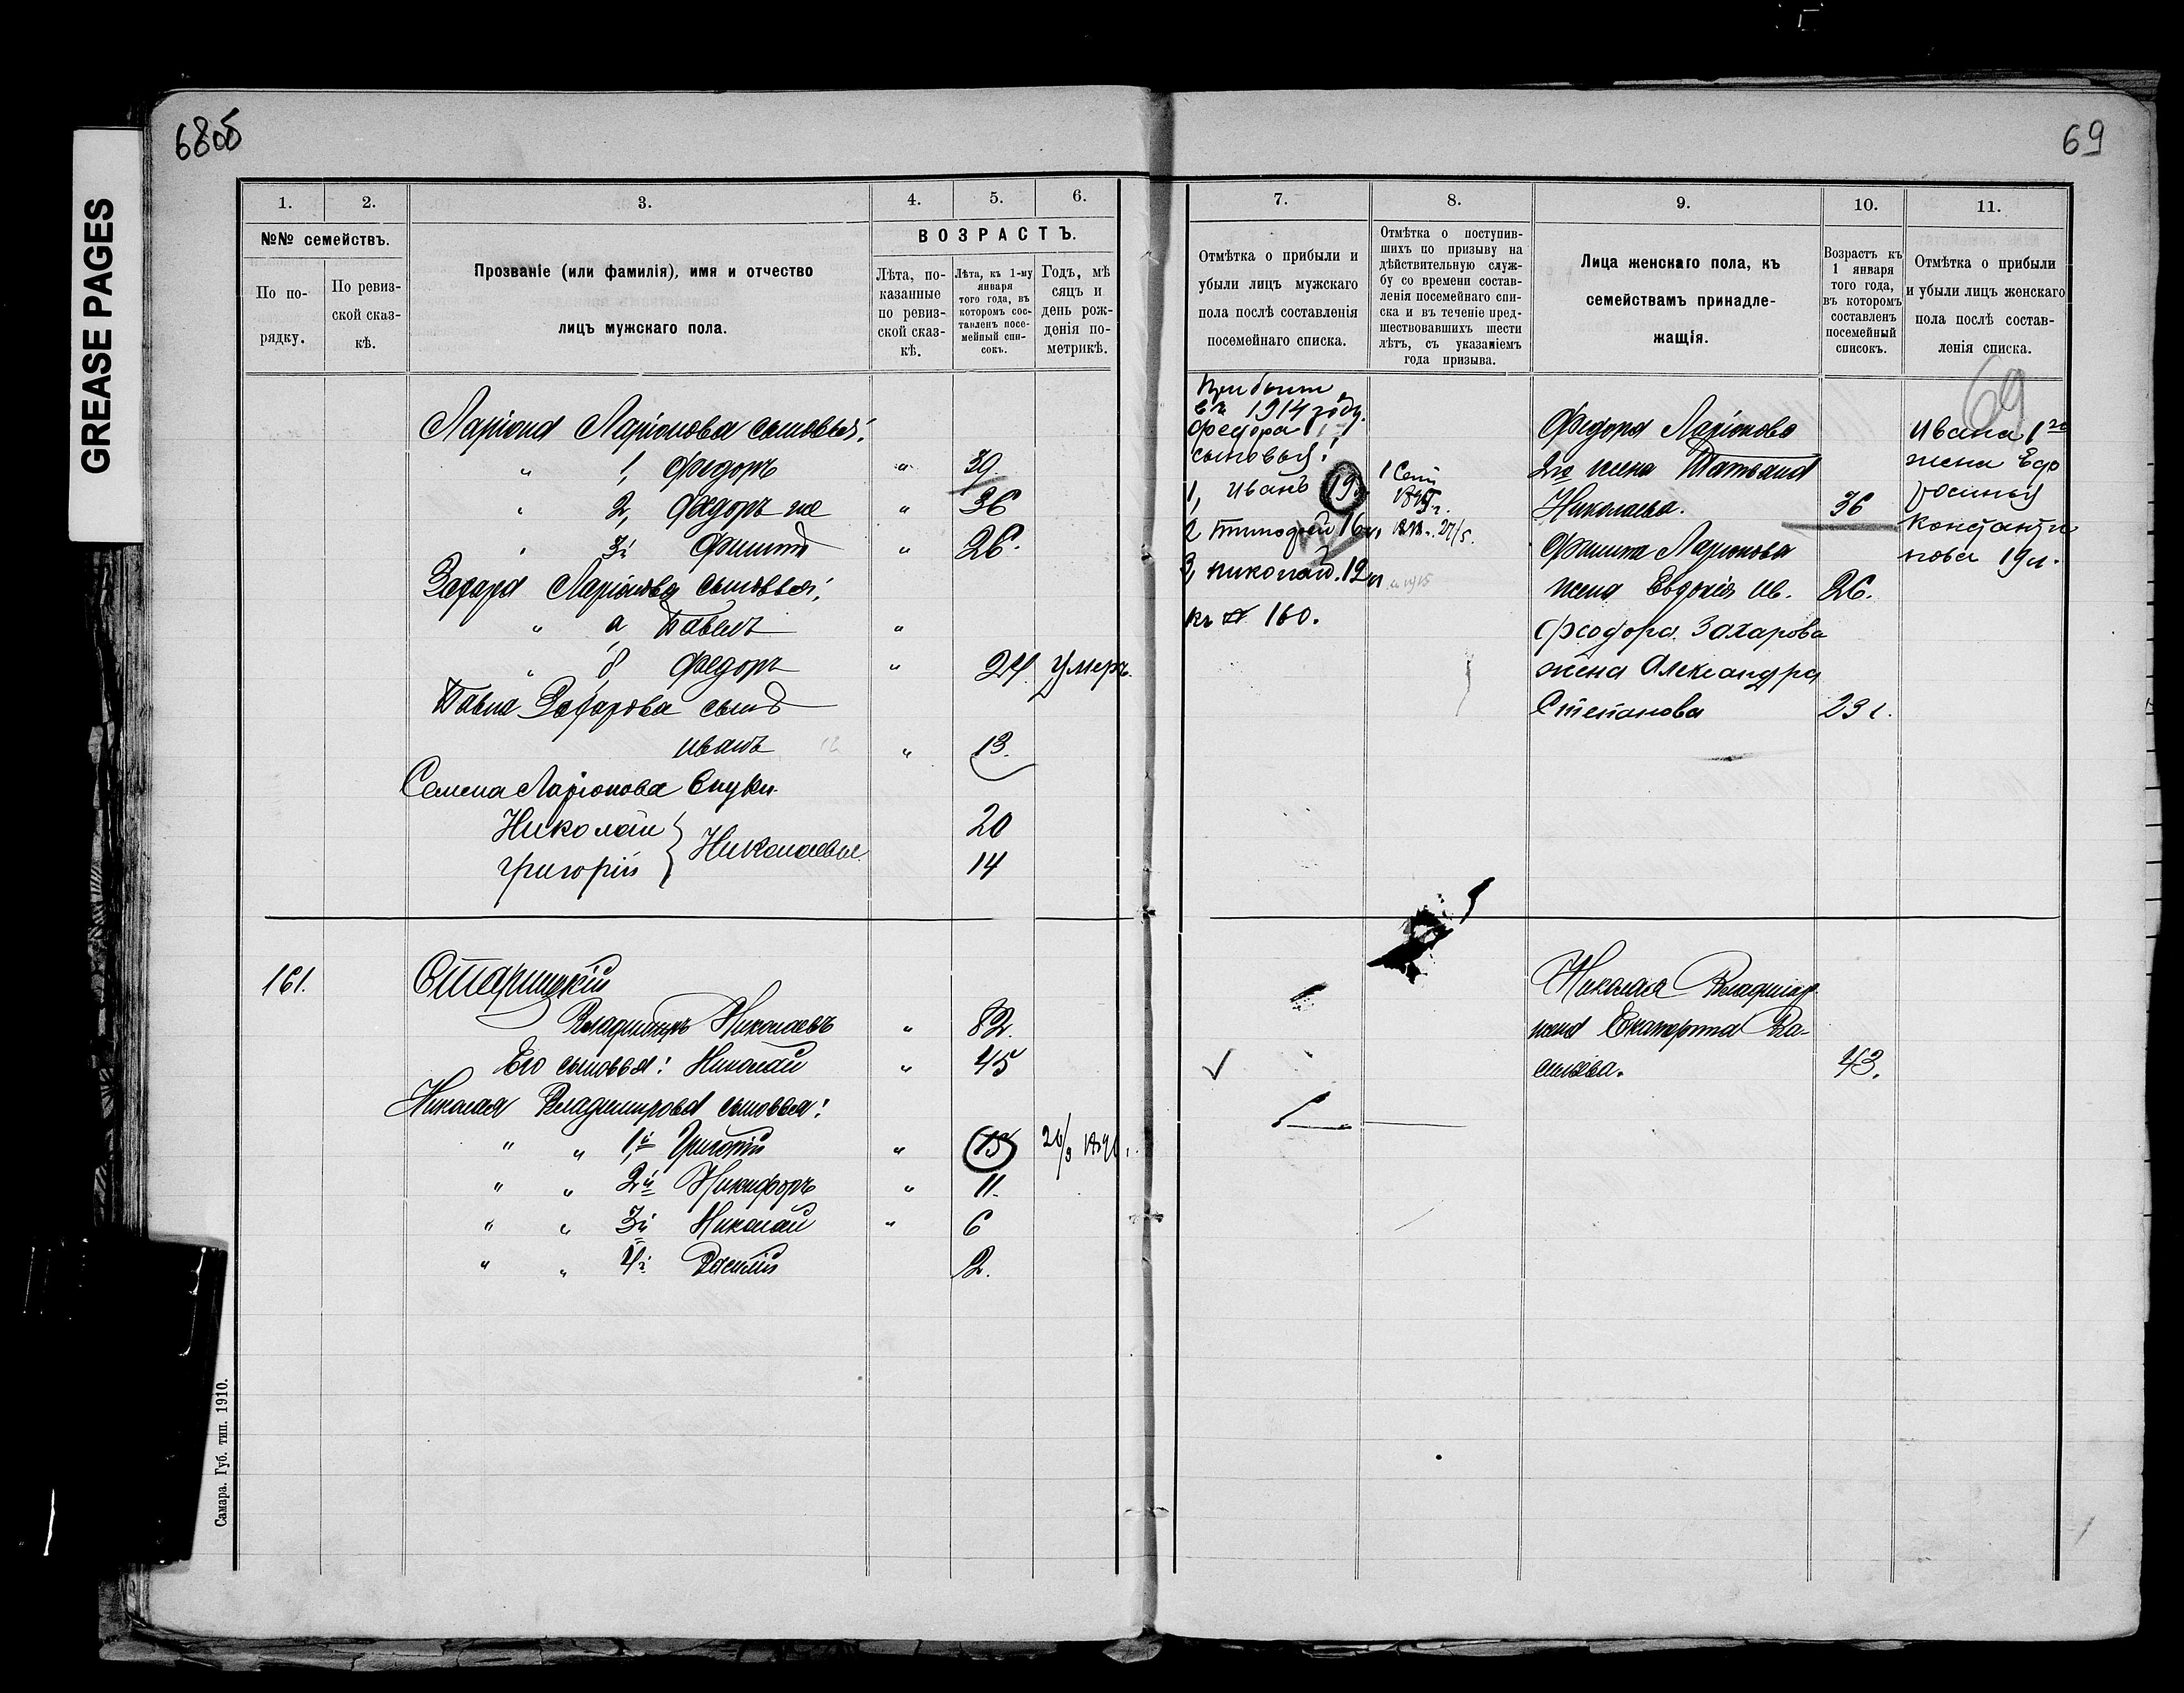 68об
69
GREASE PAGES
1. 2. 3. 4. 5. 6.
№№ семействъ.
По по-
рядку.
По ревиз-
ской сказ-
кѣ.
Прозваніе (или фамилія), имя и отчество
лицъ мужскаго пола.
ВОЗРАСТЪ.
Лѣта, по-
казанные
по ревиз-
ской сказ-
кѣ.
Лѣта, къ 1-му
января
того года, въ
которомъ сос-
тавленъ посе-
мейный спи-
сокъ.
Годъ, мѣ
сяцъ и
день рож-
денія по-
метрикѣ.
Ларіона Ларіонова сыновья:
" 1, Федоръ " 39.
" 2, Федоръ же " 36
" 3й Филиппъ " 26.
Захара Ларіонова сыновья:
" а Павелъ "
" б Федоръ " 24. умеръ.
Павла Захарова сынъ
Иванъ " 13.
Семена Ларіонова внуки
Николай 20
Николаевы
Григорій 14
161. Старицкій
Владиміръ Николаевъ " 82.
Его сыновья: Николай " 45
Николая Владимирова сыновья:
" " 1й Григорій " 15
" " 2й Никифоръ " 11.
" " 3й Николай " 6
" " 4й Василій 2.
Самара. Губ. тип. 1910.
7. 8. 9. 10. 11.
Отмѣтка о прибыли и
убыли лицъ мужскаго
пола послѣ составленія
посемейнаго списка.
Отмѣтка о поступив-
шихъ по призыву на
дѣйствительную служ-
бу со времени состав-
ленія посемейнаго спи-
ска и въ теченіе пред-
шествовавшихъ шести
лѣтъ, съ указаніемъ
года призыва.
Лица женскаго пола, къ
семействамъ принадле-
жащія.
Возрастъ къ
1 января
того года,
въ которомъ
составленъ
посемейный
списокъ.
Отмѣтка о прибыли
и убыли лицъ женскаго
пола послѣ состав-
ленія списка.
69
Прибыли
въ 1914 году.
Федора 1
сыновья:
1, Иванъ 19
2 Тимофей 16 л 27/5.
3, Николай. 12 л
къ 160.
Федора Ларіонова
2го жена Татьяна
Николаева. 36
Филиппа Ларіонова
жена Евдокія Ив. 26.
Феодора Захарова
жена Александра
Степанова 23 г.
Ивана 1го
жена Евф
росинья
Константи
нова 19 л.
Николая Владимір.
жена Екатерина Ва-
сильева. 43.